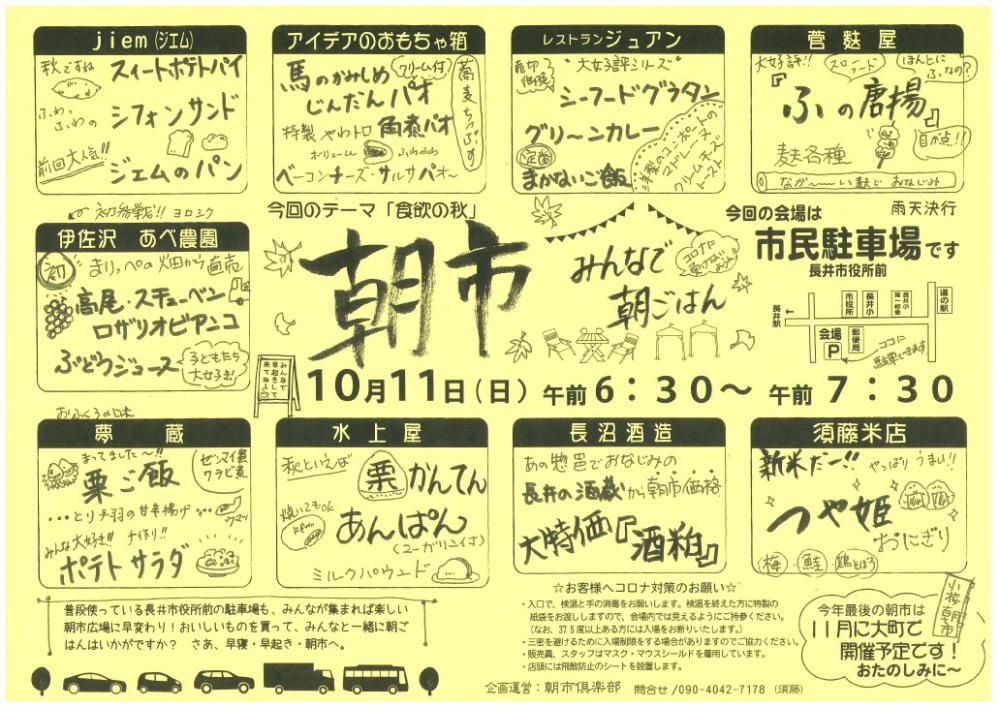 jiem(ジェム)
秋ですね
スイートポテトパイ
ふわっ
ふわっの
シフォンサンド
前回大人気!!
ジェムのパン
アイデアのおもちゃ箱
馬のがみしめ
クリーム付
じんだんパオ
特製 やわトロ 角煮パオ
ボリューム ふわふわ
ベーコンチーズ・サルサパオ〜
蕎麦ちっぷす
レストランジュアン
"大好評シリーズ"
シーフードグラタン
グリーンカレー
定番
まかないご飯
洋梨のコンポートの
マドレーヌ
クリームチーズ
トースト
菅麩屋
大好評!!
スローフード
ほんとに
ふなの?
『ふの唐揚』
麸各種
目が点!!
なが〜〜い麩でおなじみ
初参戦!! ヨロシク
伊佐沢 あべ農園
初
まりっぺの畑から直売
高尾・スチューベン
ロザリオビアンコ
ぶどうジュース
子どもたち
大好き!
今回のテーマ「食欲の秋」
朝市
みんなで
朝ごはん
コロナに
負けない
みんなで
早起きして
来てね
10月11日(日) 午前6:30〜 午前7:30
今回の会場は
雨天決行
市民駐車場です
長井市役所前
長井駅
市役所
長井小
長井小
第一校舎
道の駅
会場
P
郵便局
ココに
駐車できます
おふくろの味
夢蔵
まってました〜!!
栗ご飯
ゼンマイ煮
ワラビ煮
…とり手羽の甘辛揚げ…
ウマッ
みんな大好き!! 手作り!!
ポテトサラダ
水上屋
秋といえば
栗かんてん
焼いてもOK
あんぱん
(マーガリン付)
ミルクパウンド
長沼酒造
あの惣邑でおなじみの
長井の酒蔵から朝市価格
大特価『酒粕』
須藤米店
新米だー!!
やっぱりうまい!!
つや姫
おにぎり
梅・鮭・鶏ごぼう
普段使っている長井市役所前の駐車場も、みんなが集まれば楽しい
朝市広場に早変わり!おいしいものを買って、みんなと一緒に朝ご
はんはいかがですか? さあ、早寝・早起き・朝市へ。
☆お客様へコロナ対策のお願い☆
・入口で、検温と手の消毒をお願いします。検温を終えた方に特製の
紙袋をお渡ししますので、会場内では見えるようにご持参ください。
(なお、37.5度以上ある方には入場をお断りいたします。)
・三密を避けるために入場制限をする場合がありますのでご協力ください。
・販売員、スタッフはマスク・マウスシールドを着用しています。
・店頭には飛散防止のシートを設置します。
企画運営:朝市倶楽部 問合せ/090-4042-7178 (須藤)
小桜朝市
今年最後の朝市は
11月に大町で
開催予定です!
おたのしみに〜